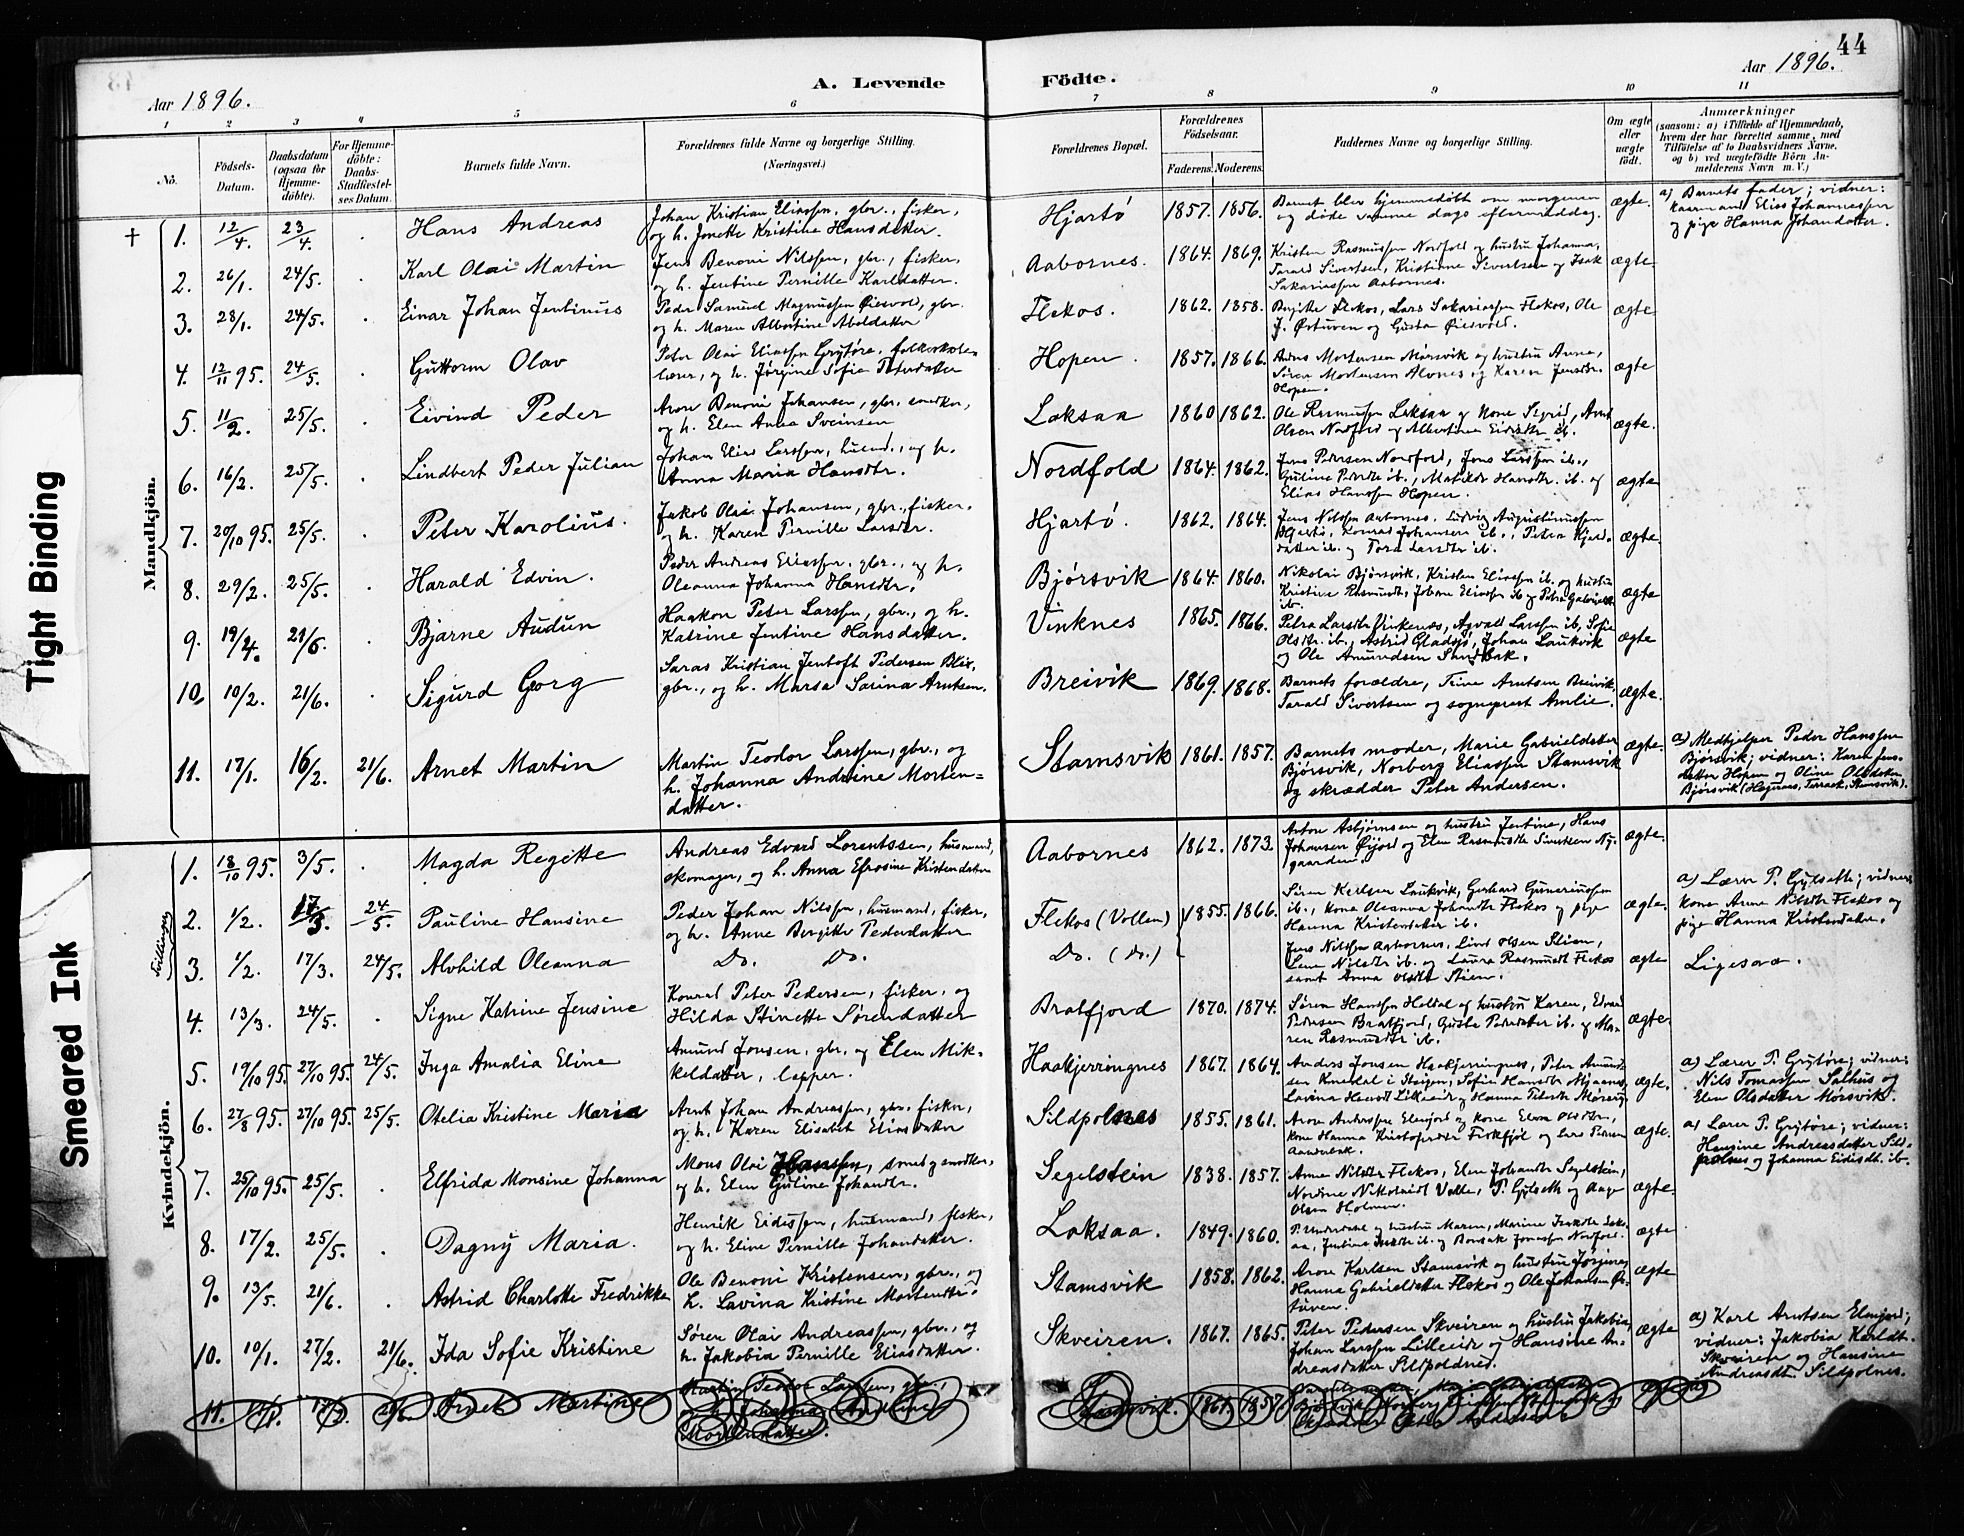 44
Aar 1896.
A. Levende
Födte.
Aar 1896.
1 2 3 4 5 6 7 8 9 10 11
No.
Födsels-Datum.
Daabsdatum (ogsaa for Hjemme-döbte).
For Hjemme-döbte: Daabs-Stadfæstel-ses Datum.
Barnets fulde Navn.
Forældrenes fulde Navne og borgerlige Stilling.
(Næringsvei.)
Forældrenes Bopæl.
Forældrenes Födselsaar.
Faderens. Moderens.
Faddernes Navne og borgerlige Stilling.
Om ægte eller uægte födt.
Anmærkninger
(saasom: a) i Tilfælde af Hjemmedaab,
hvem der har forrettet samme, med
Tilföielse af to Daabsvidners Navne,
og b) ved uægtefödte Börn An-
melderens Navn m. V.)
Mandkjön.
† 1. 12/4. 23/4. Hans Andreas
Johan Kristian Eliassen, gbr., fisker,
og h. Jonette Kristine Hansdatter.
Hjartö 1857. 1856.
Barnet blev hjemmedøbt om morgenen
og døde samme dags eftermiddag.
ægte.
a) Barnets fader; vidner:
kaarmand Elias Johannessen
og pige Hanna Johandatter.
2. 26/1. 24/5. Karl Olai Martin
Jens Benoni Nilssen, gbr., fisker,
og h. Jentine Pernille Karldatter.
Aabornes. 1864. 1869.
Kristen Rasmussen Nordfold og hustru Johanna,
Tarald Sivertsen, Kristianne Sivertsen og Isak
Sakariassen Aabornes.
ægte.
3. 28/1. 24/5. Einar Johan Jentinus
Peder Samuel Magnussen Øiesvold, gbr.
og h. Maren Albertine Abeldatter
Flekos. 1862. 1858.
Birgitte Flekos, Lars Sakariassen Flekos, Ole
J. Østuven og Gusta Øiesvold.
ægte.
4. 12/11 95. 24/5. Guttorm Olav
Peter Olai Eliassen Grytøre, folkeskole-
lærer, og h. Jørgine Sofie Peterdatter
Hopen. 1857. 1866.
Anders Mortensen Mørsvik og hustru Anna,
Søren Mortensen Alvnes og Karen Jensdtr.
Hopen.
ægte
5. 11/2. 25/5. Eivind Peder
Aron Benoni Johansen, gbr. snedker,
og h. Elen Anna Sveinsen
Laksaa 1860 1862.
Ole Rasmussen Laksaa og kone Sigrid, Arnt
Olsen Nordfold og Albertine Eidesdtr ib.
ægte.
6. 16/2. 25/5. Lindbert Peder Julian
Johan Elias Larssen, husmd., og h.
Anna Maria Hansdtr.
Nordfold 1864. 1862.
Jens Pedersen Nordfold, Jens Larssen ib.,
Guline Pedersdtr ib., Matilde Hansdtr. ib. og
Elias Hanssen Hopen.
ægte
7. 20/10 95. 25/5. Peter Karolius.
Jakob Olai Johansen, gbr., fisker,
og h. Karen Pernille Larsdtr.
Hjartö. 1862. 1864.
Jens Nilssen Aabornes, Ludvig Augustinussen
Hjartö, Konrad Johansen ib., Petra Hjerd-
datter ib. og Tora Larsdtr ib.
ægte.
8. 29/2. 25/5. Harald Edvin.
Peder Andreas Eliassen, gbr., og h.
Oleanna Johanna Hansdtr.
Bjørsvik 1864. 1860.
Nikolai Bjørsvik, Kristen Eliassen ib. og hustru
Kristine Rasmusdtr, Johan Eliassen ib og Petra Gabrieldtr
ib.
ægte
9. 19/4. 21/6. Bjarne Audun
Haakon Peter Larssen, gbr., og h.
Katrine Jentine Hansdatter.
Vinknes 1865. 1866.
Petra Larsdtr Vinkenæs, Agvald Larssen ib, Sofie
Olsdtr. ib., Astrid Gladsjö, Johan Laukvik
og Ole Amundsen Strindbak.
ægte
10. 10/2. 21/6. Sigurd Georg
Saras Kristian Jentoft Pedersen Blix,
gbr., og h. Marsa Sarina Arntsen.
Breivik 1869. 1868.
Barnets forældre, Trine Arntsen Breivik,
Tarald Sivertsen og sogneprest Amlie.
ægte.
11. 17/1. 16/2. 21/6. Arnet Martin
Martin Teodor Larssen, gbr., og
h. Johanna Andrine Morten-
datter.
Stamsvik 1861. 1857.
Barnets moder, Marie Gabrieldatter
Bjørsvik, Norberg Eliassen Stamsvik
og skrædder Peter Andersen.
ægte.
a) Medhjelper Peder Hanssen
Bjørsvik; vidner: Karen Jens-
datter Hopen og Oline Olsdatter
Bjørsvik
Kvindekjön.
1. 18/10 95. 3/5. Magda Regitte
Andreas Edvard Lorentssen, husmand,
skomager, og h. Anna Efrosine Kristendatter
Aabornes 1862. 1873.
Anton Asbjørnsen og hustru Jentine, Hans
Johansen Øijord og Elen Rasmusdtr Simensen Ny-
gaarden.
ægte.
Tvillinger
2. 1/2. 17/3. 24/5. Pauline Hansine
Peder Johan Nilssen, husmand, fisker,
og h. Anne Bergitte Pedersdatter
Flekos (Vollen) 1855. 1866.
Søren Karlsen Laukvik, Gerhard Guneriussen
ib., kone Oleanna Johandtr Flekos og pige
Hanna Kristendatter ib.
ægte.
a) Lærer P. Gylseth; vidner:
kone Anne Nilsdtr Flekos og
pige Hanna Kristendatter.
3. 1/2. 17/3. 24/5. Alvhild Oleanna
Do. Do.
Do. (Do.)
Jens Nilssen Aabornes, Lind Olsen Stien,
Lene Nilsdtr ib. og Laura Rasmusdtr Flekos
samt Anna Olsdtr Stien.
ægte
Ligesaa.
4. 13/3. 24/5. Signe Katrine Jensine
Konrad Peter Pedersen, fisker, og
Hilda Stinette Sørendatter
Bratfjord 1870. 1874.
Søren Hanssen Heldal og hustru Karen, Edvard
Pedersen Bratfjord, Gusta Pedersdatter ib. og Ma-
ren Rasmusdtr ib.
ægte.
5. 19/10 95. 27/10 95. 24/5. Inga Amalia Eline
Amund Jonsen, gbr. og Elen Mik-
keldatter, lapper.
Haakjerringnes 1867. 1864.
Anders Jonsen Haakjerringnes, Peter Amund-
sen Kneidal i Steigen, Sofie Hansdtr
ægte.
a) Lærer P. Grytøre; vidner:
Nils Tomassen Salhus og
Elen Olsdatter Mørsvik.
6. 27/8 95. 27/10 95. 25/5. Otelia Kristine Maria
Arnt Johan Andreassen, gbr. fisker,
og h. Karen Elisabet Eliasdatter
Sildpolnes 1855. 1861.
Aron Andreassen Elenjord og kone Elen Olsdtr,
kone Hanna Kristofersdtr Fiskfjøl og Lars Petersen
ægte.
a) Lærer P. Grytøre; vidner:
Hansine Andreasdatter Sild-
polnes og Johanna Eidisdt. ib.
7. 25/10 95. 25/5. Elfrida Monsine Johanna
Mons Olai Hanssen, smed og snedker,
og h. Elen Guline Johandtr.
Segelstein 1838. 1857.
Anne Nilsdtr Flekos, Elen Johandtr Segelstein,
Nordine Nikolaidt Valle, P. Gylseth og Aage
Olsen Holmen.
ægte.
8. 17/2. 25/5. Dagny Maria.
Henrik Eidissen, husmand, fisker,
og h. Eline Pernille Johandatter.
Laksaa. 1849. 1860.
ægte
9. 13/5. 21/6. Astrid Charlotte Fredrikke
Ole Benoni Kristensen, gbr., og
h. Lavina Kristine Mortendtr.
Stamsvik 1858. 1862.
Aron Karlsen Stamsvik og hustru Jørgine,
Hanna Gabrieldatter Flekos og Ole Johansen Øs-
tuven.
ægte
10. 10/1. 27/2. 21/6. Ida Sofie Kristine
Søren Olai Andreassen, gbr., og
h. Jakobia Pernille Eliasdatter.
Skveiren. 1867. 1865.
Peter Pedersen Skveiren og hustru Jakobia,
Johan Larssen Lilleeide og Hansine An-
dreasdatter Sildpoldnes.
ægte
a) Karl Arntsen Elenjord;
vidner: Jakobia Karldt.
Skveiren og Hansine
Andreasdt. Sildpolnes.
11. 17/1. 21/6. Arnet Martine
Martin Teodor Larssen, gbr.,
og h. Johanna Andrine
Mortendatter.
Stamsvik. 1861. 1857.
Tight Binding
Smeared Ink